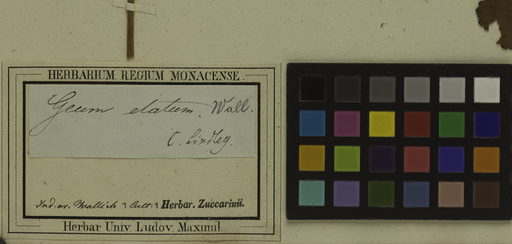 HERBARIUM REGIUM MONACENSE.
Geum elatum. Wall.
C. Lindley.
Ind. or. Wallich Herbar. Zuccarinii.
Herbar. Univ. Ludov. Maximil.